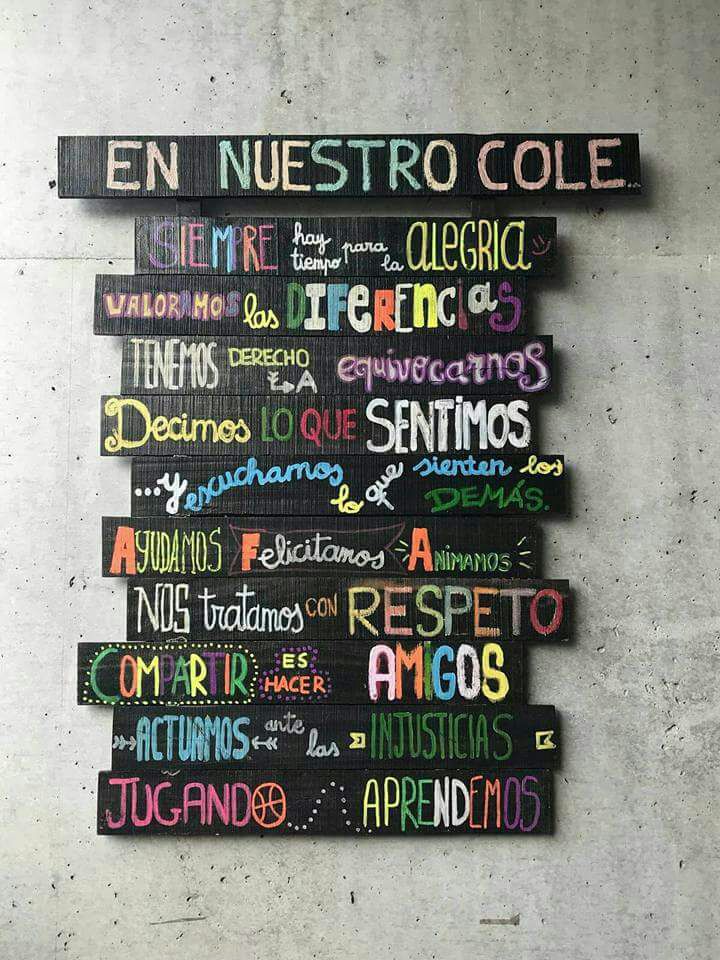 EN NUESTRO COLE...
SIEMPRE hay tiempo para la ALEGRIA
VALORAMOS las DIFERENCIAS
TENEMOS DERECHO A equivocarnos
Decimos LO QUE SENTIMOS
...y escuchamos lo que sienten los DEMÁS.
AYUDAMOS Felicitamos ANIMAMOS
NOS tratamos CON RESPETO
COMPARTIR ES HACER AMIGOS
ACTUAMOS ante las INJUSTICIAS
JUGANDO APRENDEMOS